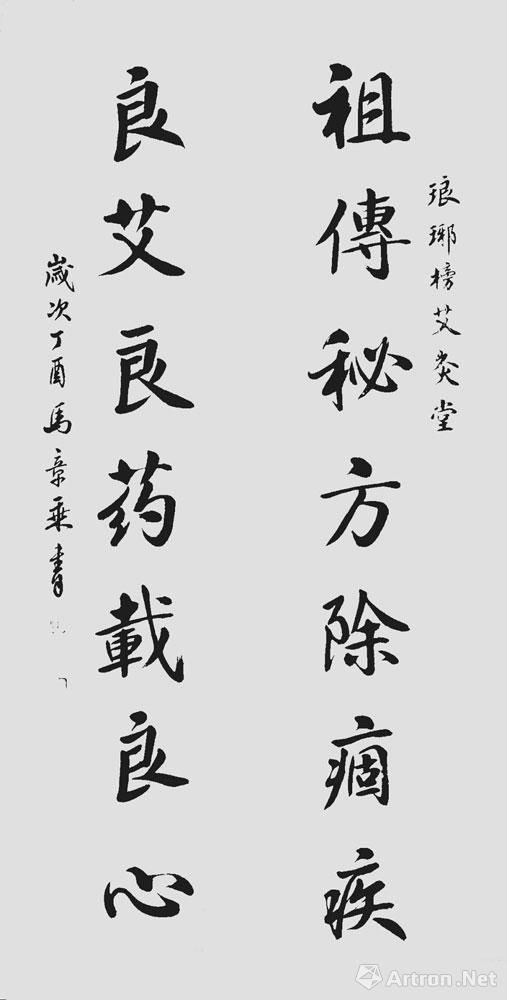 琅琊榜艾灸堂
祖傳秘方除痼疾
良艾良药載良心
歲次丁酉馬章乘書
Artron.Net